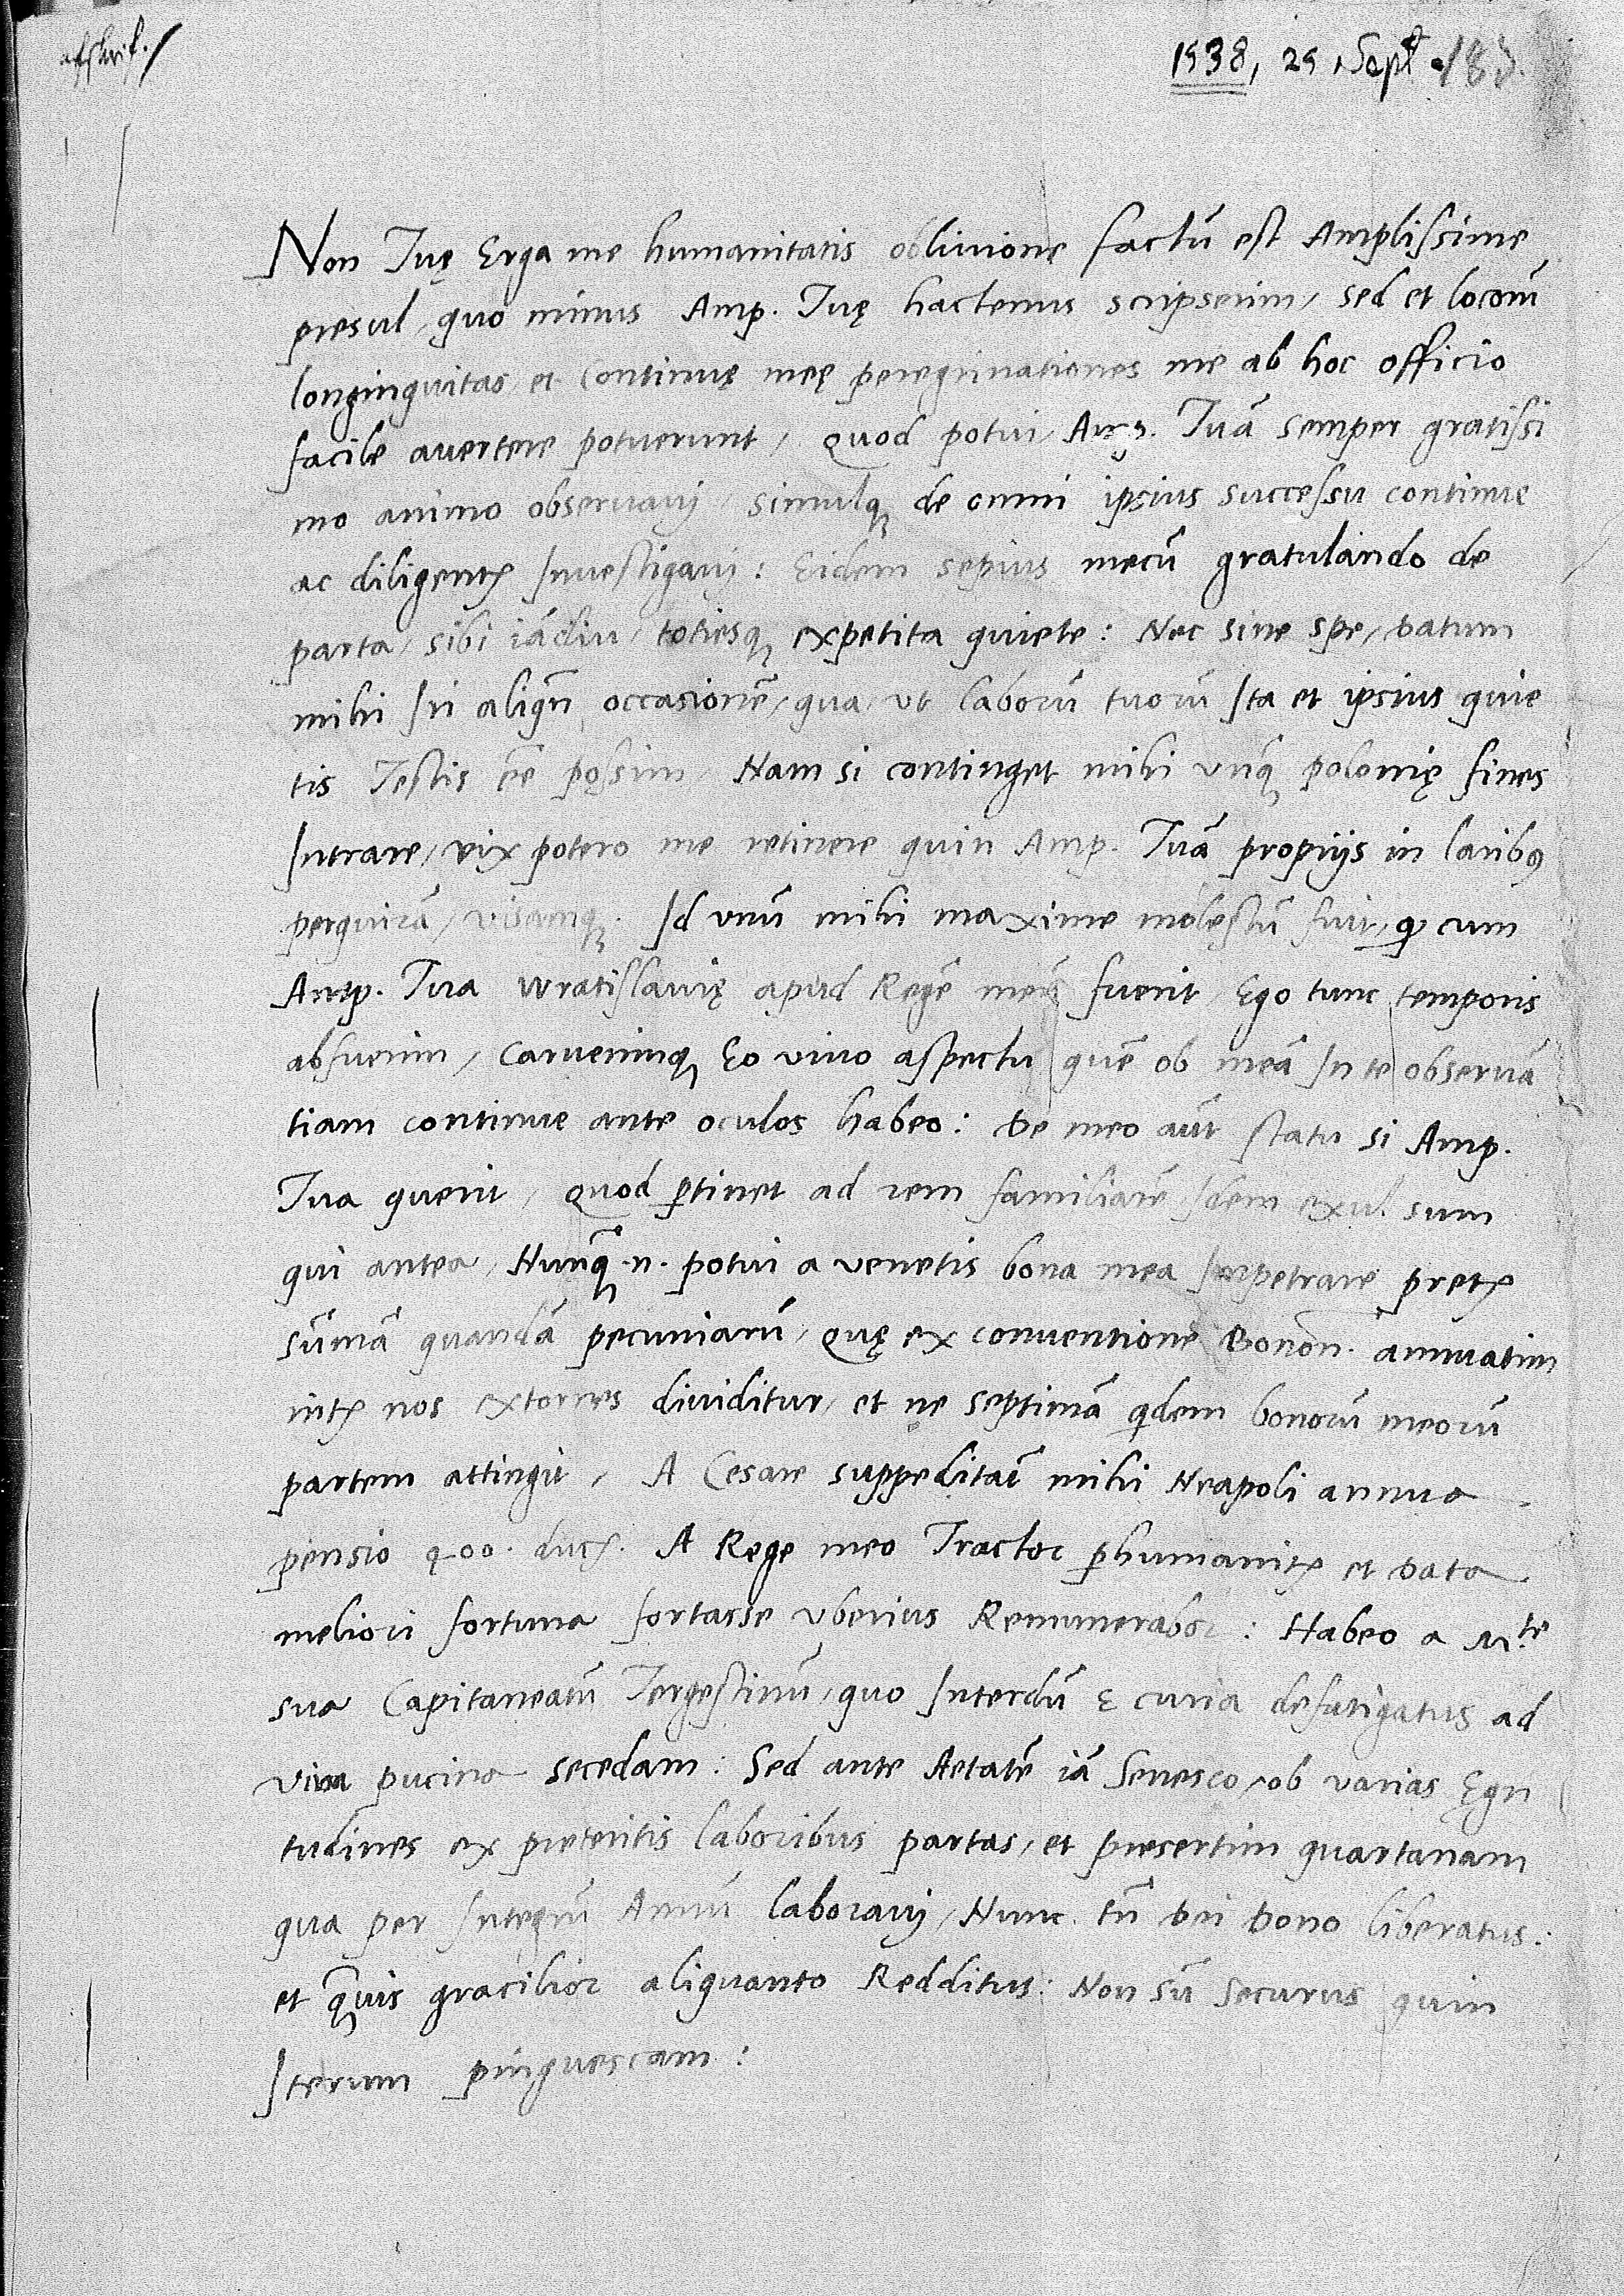 afskrif.
1538, 25 Sept. 183.
Non Tuę Erga me humanitatis obliuione factū est Amplissime
presul, quo minus Amp. Tuę hactenus scripserim, sed et locorū
longinquitas, et Continuę meę peregrinationes me ab hoc officio
facile auertere potuerunt, Quod potui, Amp. Tuā semper gratissi
mo animo obseruauj, simulq de omni ipsius successu continue
ac diligentr Inuestigauj: Eidem sepius mecū gratulando de
parta, sibi iādiu, totiesq expetita quiete: Nec sine spe, datum
mihi Iri aliqn occasionē, qua, vt laborū tuorū Ita et ipsius quie
tis Testis eē possim, Nam si continget mihi vnq polonię fines
Intrare, vix potero me retinere quin Amp. Tuā propriis in laribus
perquirā, visamq. Id vnū mihi maxime molestū fuit, q cum
Amp. Tua wratislauię apud Regē meū fuerit, Ego tunc temporis
absuerim, Caruerimq Eo viuo aspectu quē ob meā In te obseruā
tiam continue ante oculos habeo: De meo aūt statu si Amp.
Tua querit, Quod ptinet ad rem familiarē Idem exul sum
qui antea, Nunq .n. potui a venetis bona mea Impetrare pretr
sūmā quandā pecuniarū, quę ex conuentione Bonon. annuatim
intr nos extorres diuiditur, et ne septimā qdem bonorū meorū
partem attingit, A Cesare suppeditat mihi Neapoli annua
pensio 400. duc. A Rege meo Tractor phumanitr et data
meliori fortuna fortasse vberius Remunerabor: Habeo a M.te
sua Capitaneatū Tergestinū, quo Interdū E curia defatigatus ad
vina pucina secedam: Sed ante Aetatē iā Senesco, ob varias Egri
tudines ex preteritis laboribus partas, et presertim quartanam
qua per Integrū Annū laborauj, Nunc tn̄ Dei Dono liberatus:
et quis gracilior aliquanto Redditus: Non sū securus quin
Iterum pinguescam: